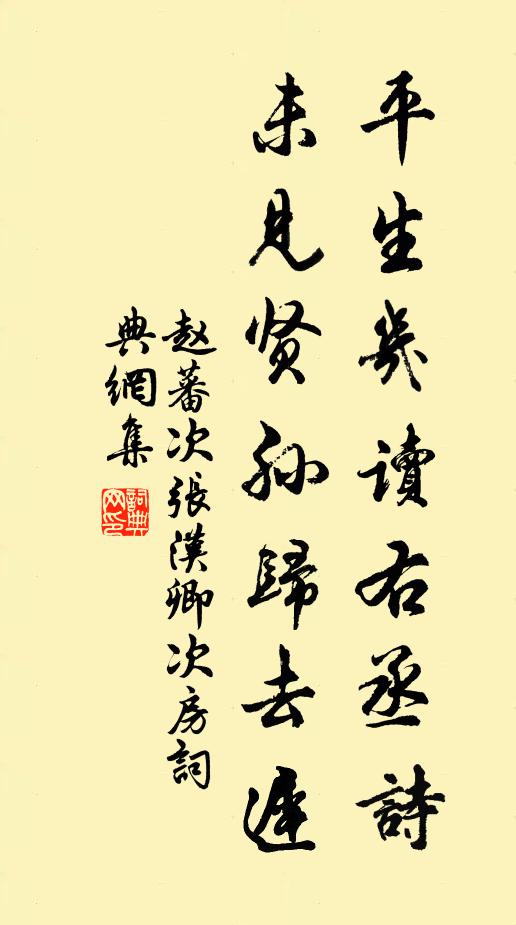 平生幾讀右丞詩
未見贤孙歸去遲
赵蕃次張漢卿次房詞
典網集
詞典网印